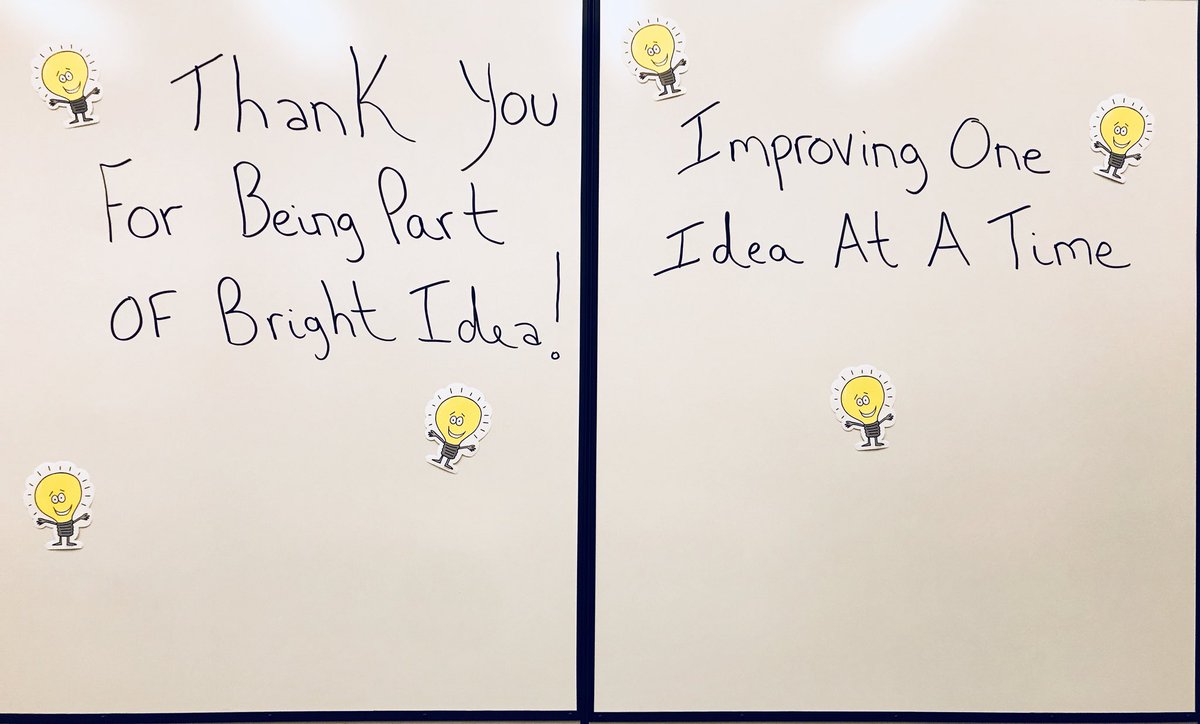 Thank You
For Being Part
OF Bright Idea!
Improving One
Idea At A Time